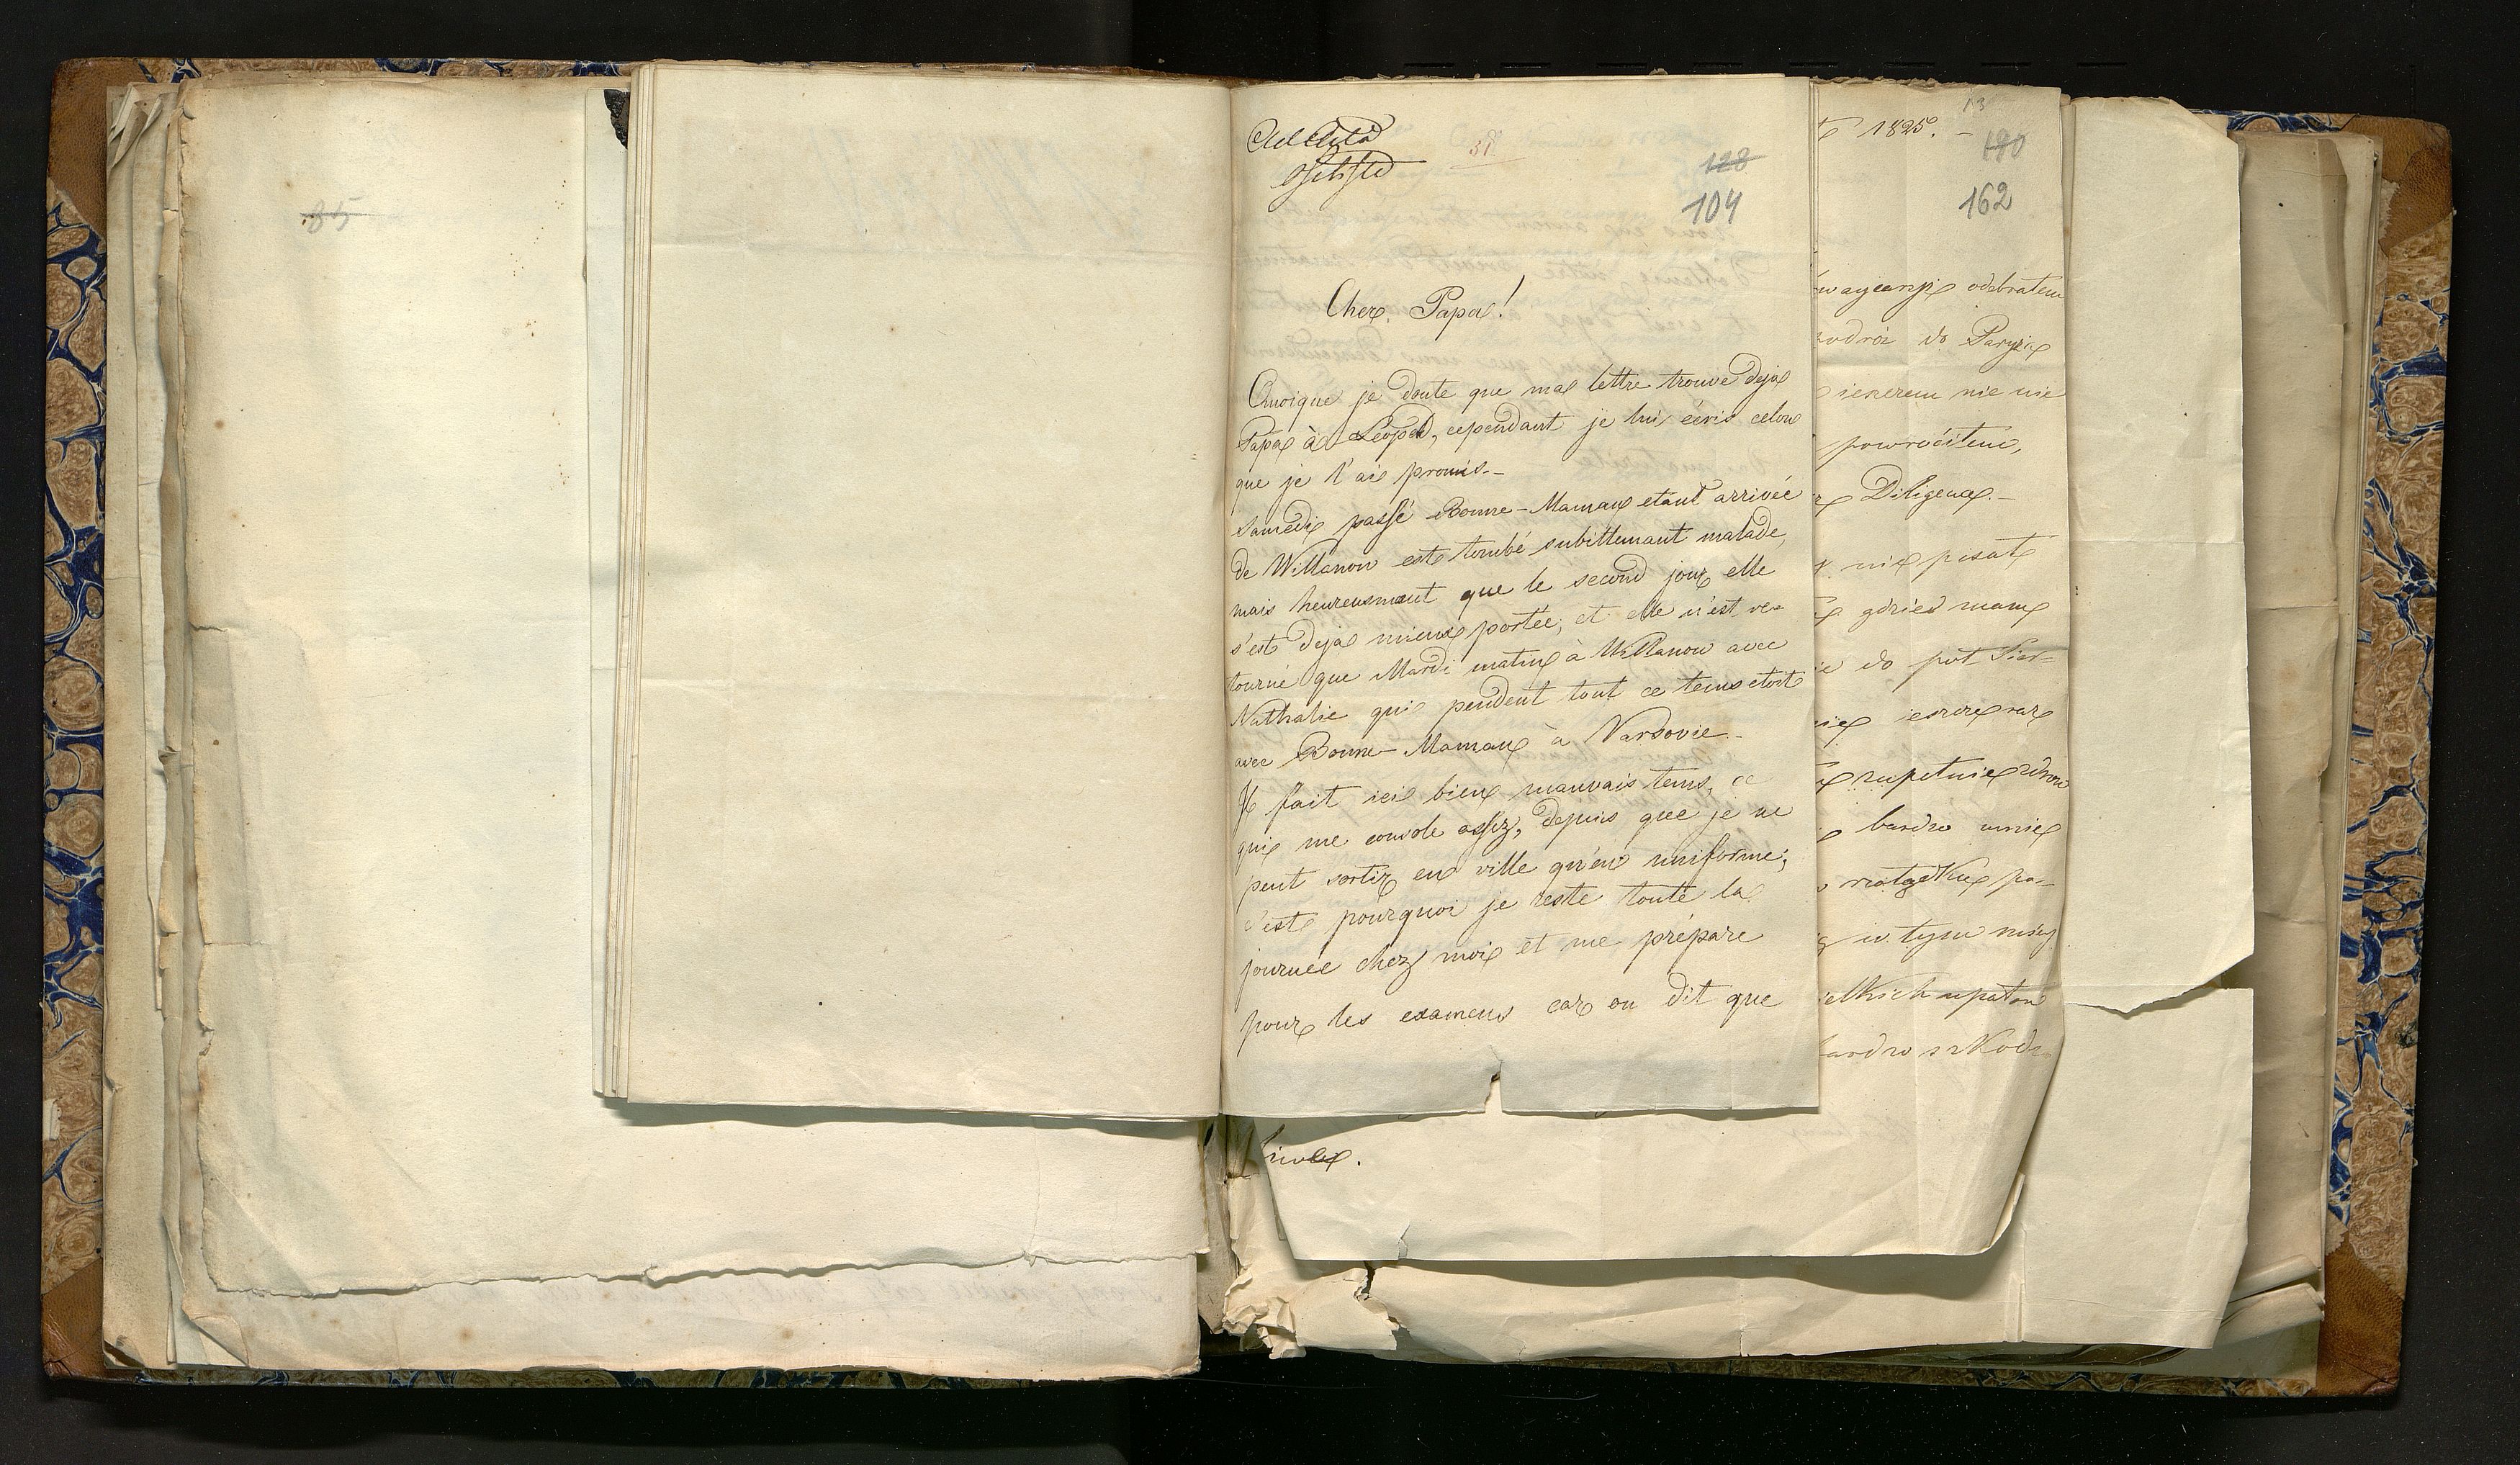 85
31
128
104
Cher Papa!
Quoique je doute que ma lettre trouve deja
Papa à Léopol, cependant je lui écris celon
que je l'ai promis.-
Samedi passé Bonne-Maman etant arrivée
de Willanow est tombé subittemant malade,
mais heureusmant que le second jour elle
s'est deja mieux portée, et elle n'est re-
tourné que Mardi matin à Willanow avec
Nathalie qui pendent tout ce tems etoit
avec Bonne-Maman à Varsovie.-
Il fait ici bien mauvais tems, ce
qui me console assez, depuis que je ne
peut sortir en ville qu'en uniforme;
c'est pourquoi je reste toute la
journée chez moi et me prépare
pour les examens car on dit que
13
1825. -
190
162
odebrałem
do Paryża
nie nie
powróciłem,
Diligence.-
nie pisał,
gdzieś mam
do pół Sier=
bardzo
w tym